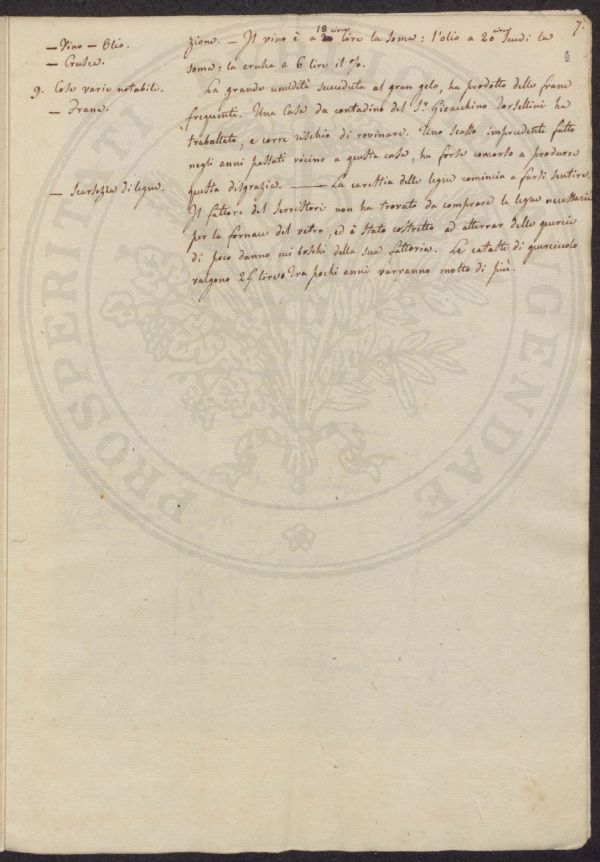 7.
— Vino — Olio.
— Crusca.
9. Cose varie notabili.
— Frane.
— Scarsezza di legne.
zione. — Il vino è a 18 circa lire la soma: l'olio a 20 circa Scudi la
soma: la crusca a 6 lire il %.
La grande umidità succeduta al gran gelo, ha prodotto delle frane
frequenti. Una Casa da contadino del Sr. Gioacchino Torsellini ha
traballato, e corre rischio di rovinare. Uno scasso imprudente fatto
negli anni passati vicino a questa casa, ha forse concorso a produrre
questa disgrazia. — La carestia delle legne comincia a farsi sentire.
Il fattore del Serristori non ha trovato da comprare le legne necessarie
per la fornace del vetro, ed è stato costretto ad atterrar delle quercie
di poco danno nei boschi della sua fattoria. Le cataste di querciuolo
valgono 25 lire. Tra pochi anni varranno molto di più.
PROSPERITATI AUGENDAE